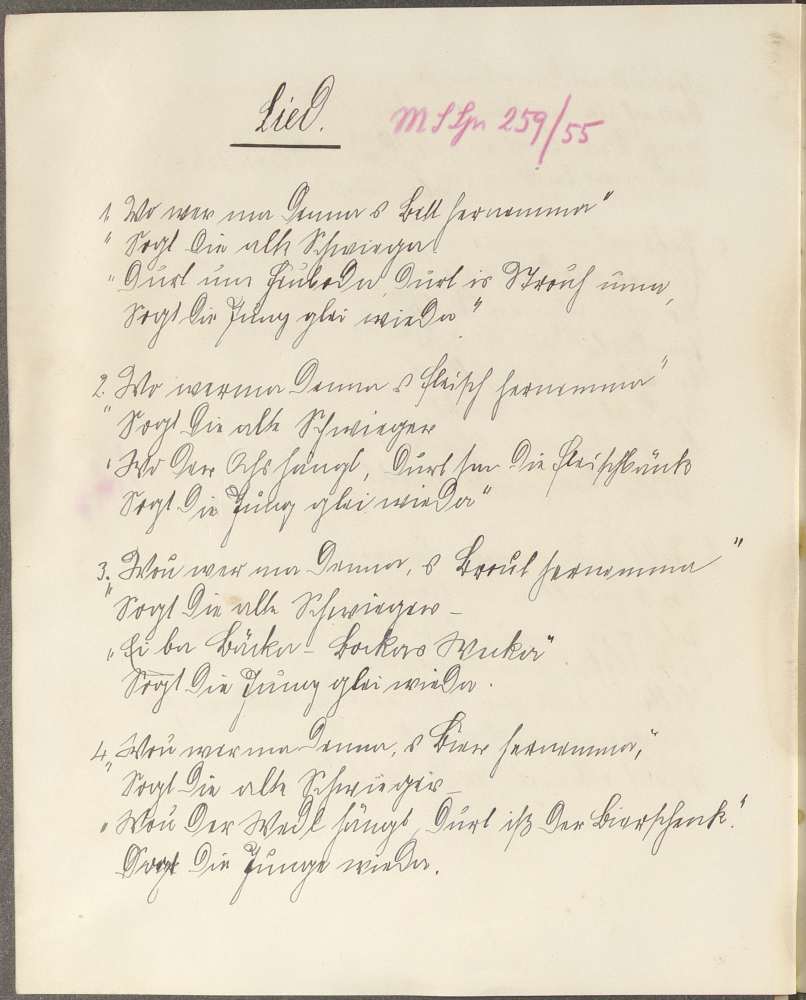 Lied.
M S Spr 259/55
1. Wo wer ma denna s Bett hernemma"
" Sogt die alte Schwiega.
" Durt um Heubodn, durt is Strouh inna,
Sogt die Jung glei wieda"
2. Wo werma denna s Fleisch hernemma"
" Sogt die alte Schwieger
" Wo der Ochs hängt, durt san die Fleischbänk
Sogt die Jung glei wieda"
3. Wou wer ma denna, s Brout hernemma"
" Sogt die alte Schwieger –
" Bei ba Bäcka – Wecka"
Sogt die Jung glei wieda.
4. Wou werma denna, s Bier hernemma,"
" Sogt die alte Schwieger –
" Wou der Wedl hängt, durt iß der Bierschenk."
Sogt die Junge wieda.